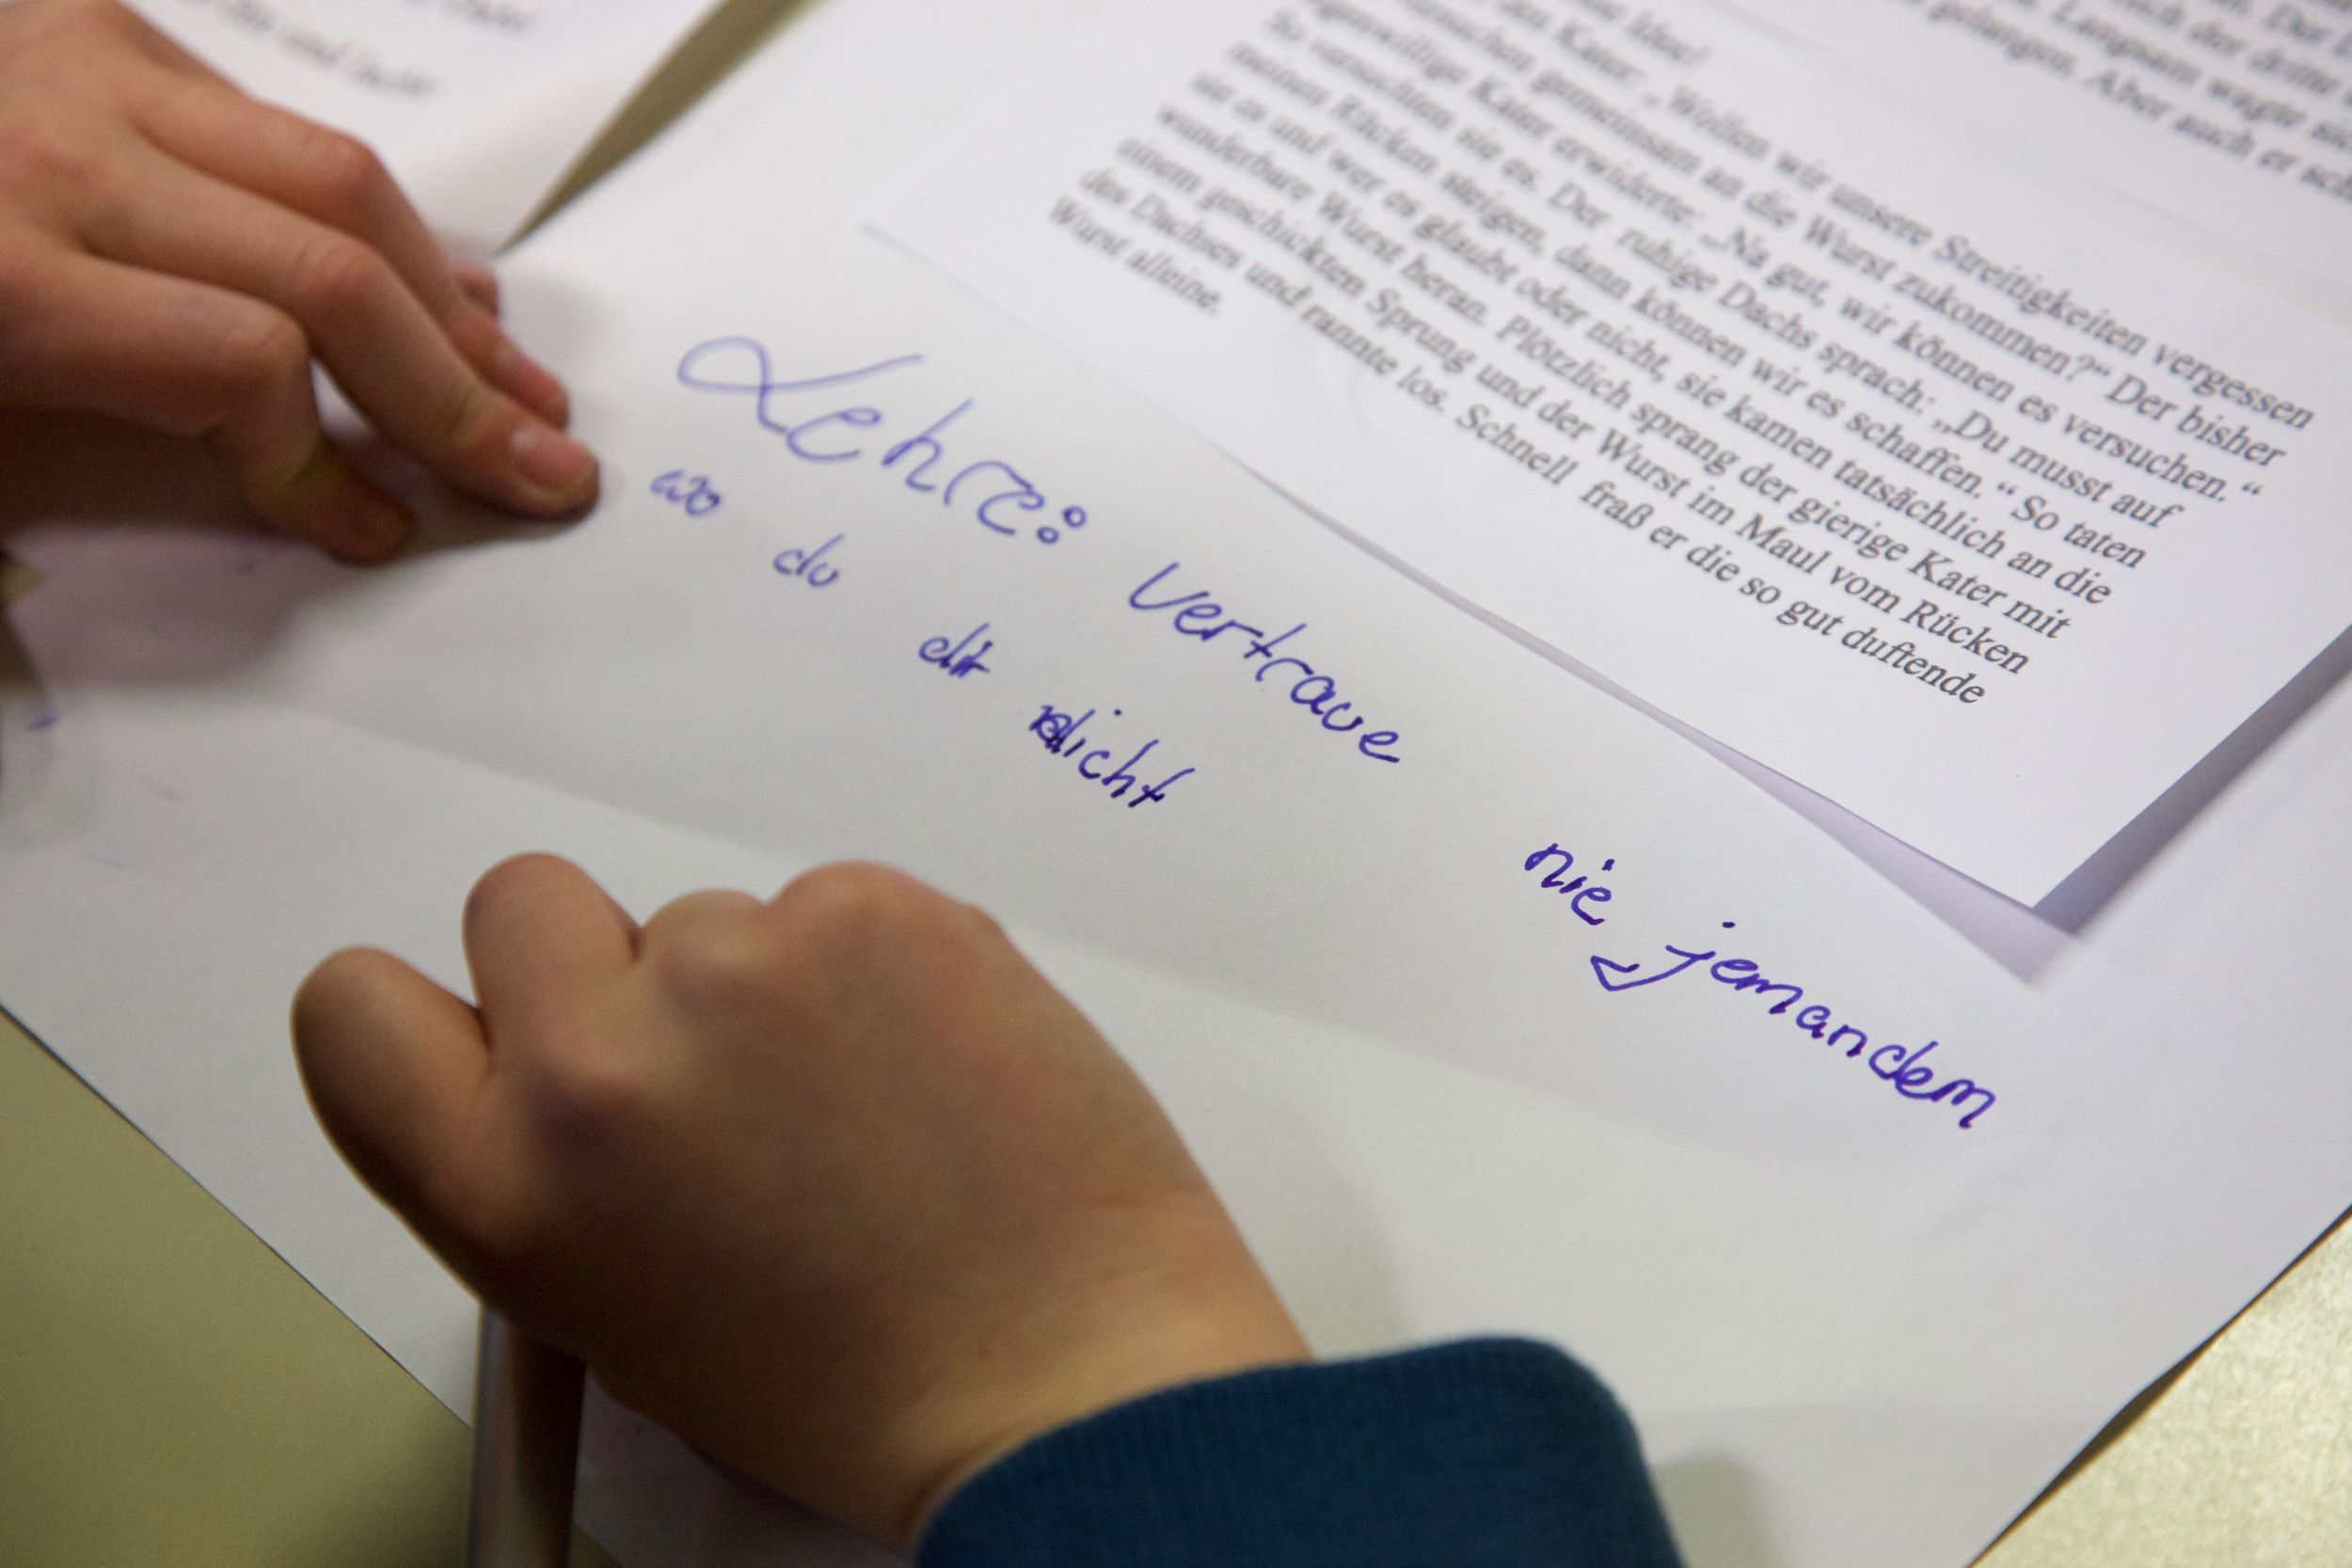 und läuft
gelangen. Aber auch er
Idee!
Kater: „Wollen wir unsere Streitigkeiten vergessen
gemeinsam an die Wurst zukommen?“ Der bisher
Kater erwiderte: „Na gut, wir können es versuchen.“
So versuchten sie es. Der ruhige Dachs sprach: „Du musst auf
meinen Rücken steigen, dann können wir es schaffen.“ So taten
sie es und wer es glaubt oder nicht, sie kamen tatsächlich an die
wunderbare Wurst heran. Plötzlich sprang der gierige Kater mit
einem geschickten Sprung und der Wurst im Maul vom Rücken
des Dachses und rannte los. Schnell fraß er die so gut duftende
Wurst alleine.
Lehre: Vertraue nie jemandem
wo du dir nicht